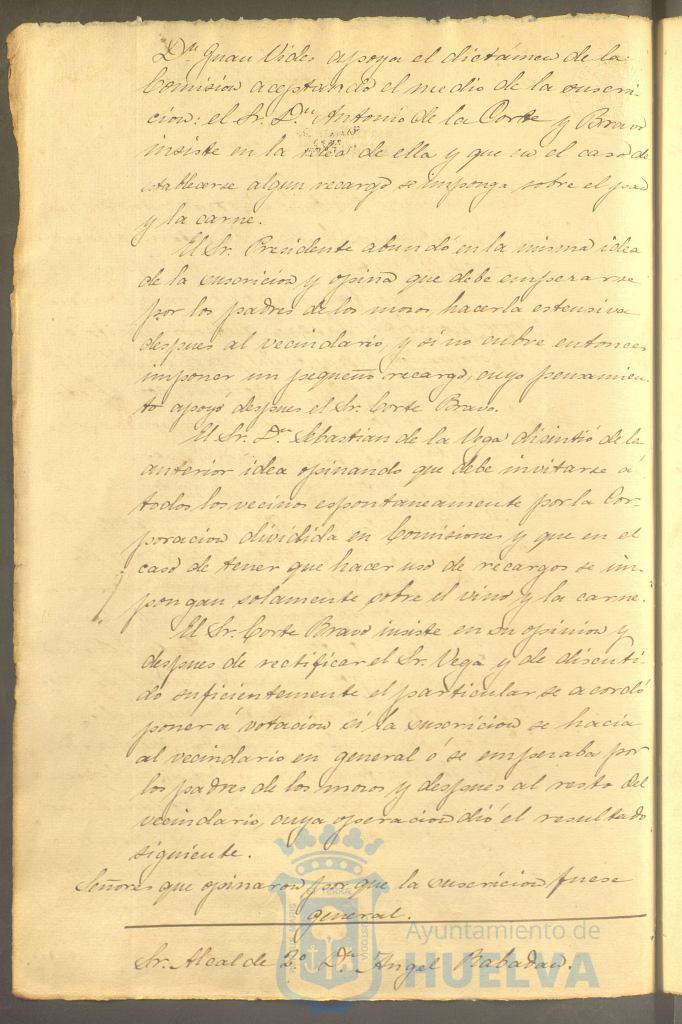 Dn Juan Vides apoya el dictámen de la
Comision aceptando el medio de la suscri-
cion: el Sr. Dn Antonio de la Corte y Bravo
insiste en la idea de ella y que en el caso de
establecerse algun recargo se imponga sobre el pan
y la carne.
El Sr. Presidente abundó en la misma idea
de la suscricion y opina que debe empezarse
por los padres de los mozos, hacerla estensiva
despues al vecindario, y si no cubre entonces
imponer un pequeño recargo, cuyo pensamien-
to apoyó despues el Sr. Corte Bravo.
El Sr. Dn Sebastian de la Vega disintió de la
anterior idea opinando que debe invitarse á
todos los vecinos espontaneamente por la Cor-
poracion dividida en Comisiones y que en el
caso de tener que hacer uso de recargos se im-
pongan solamente sobre el vino y la carne.
El Sr. Corte Bravo insiste en su opinion y
despues de rectificar el Sr. Vega y de discuti-
do suficientemente el particular se acordó
poner á votacion si la suscricion se hacia
al vecindario en general ó se empezaba por
los padres de los mozos y despues al resto del
vecindario, cuya operacion dió el resultado
siguiente.
Señores que opinaron porque la suscricion fuese
general.
Sr. Alcalde 2º Dn Angel Rabadan.
Ayuntamiento de
HUELVA